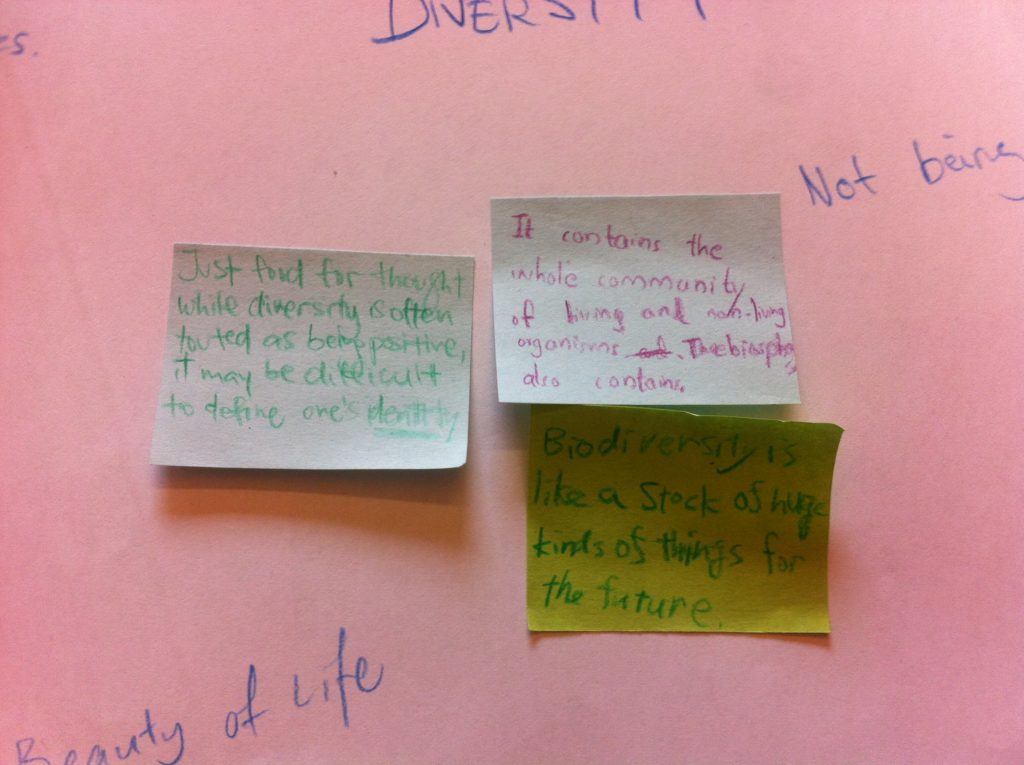 DIVERSITY
es.
Not being
Just food for thought
while diversity is often
touted as being positive,
it may be difficult
to define one's identity
It contains the
whole community
of living and non-living
organisms of. The biosphere
also contains.
Biodiversity is
like a stock of huge
kinds of things for
the future.
Beauty of Life